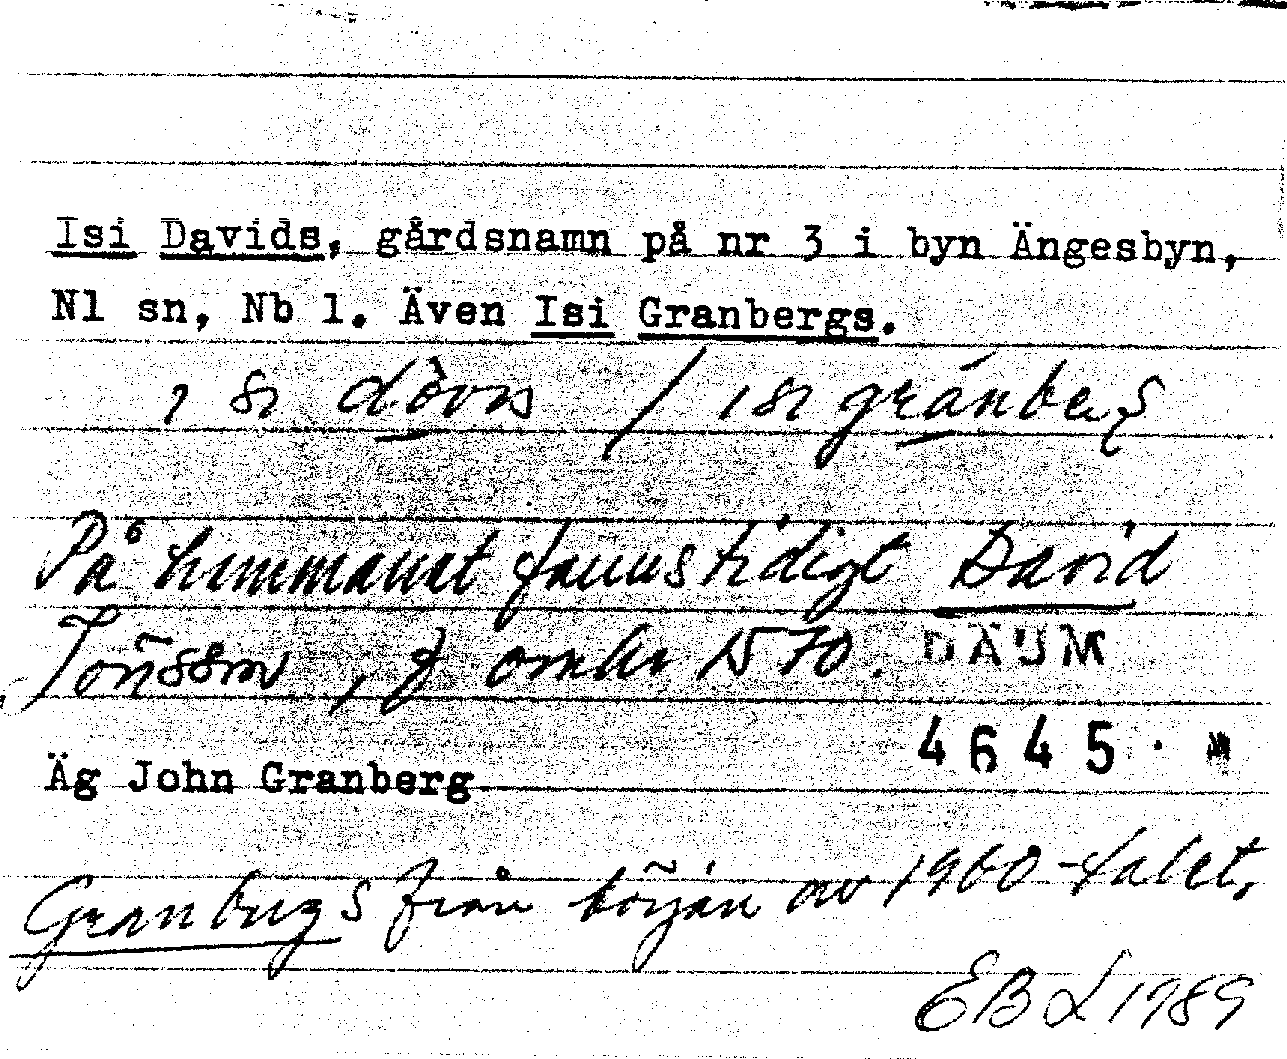 Isi Davids, gårdsnamn på nr 3 i byn Ängesbyn,
Nl sn, Nb l. Även Isi Granbergs.
isi / isi granbergs
På hemmanet fanns tidigt David
Jönsson, f omkr 1570. DAUM
4645.
Äg John Granberg
Granbergs från början av 1960-talet.
EBL 1989